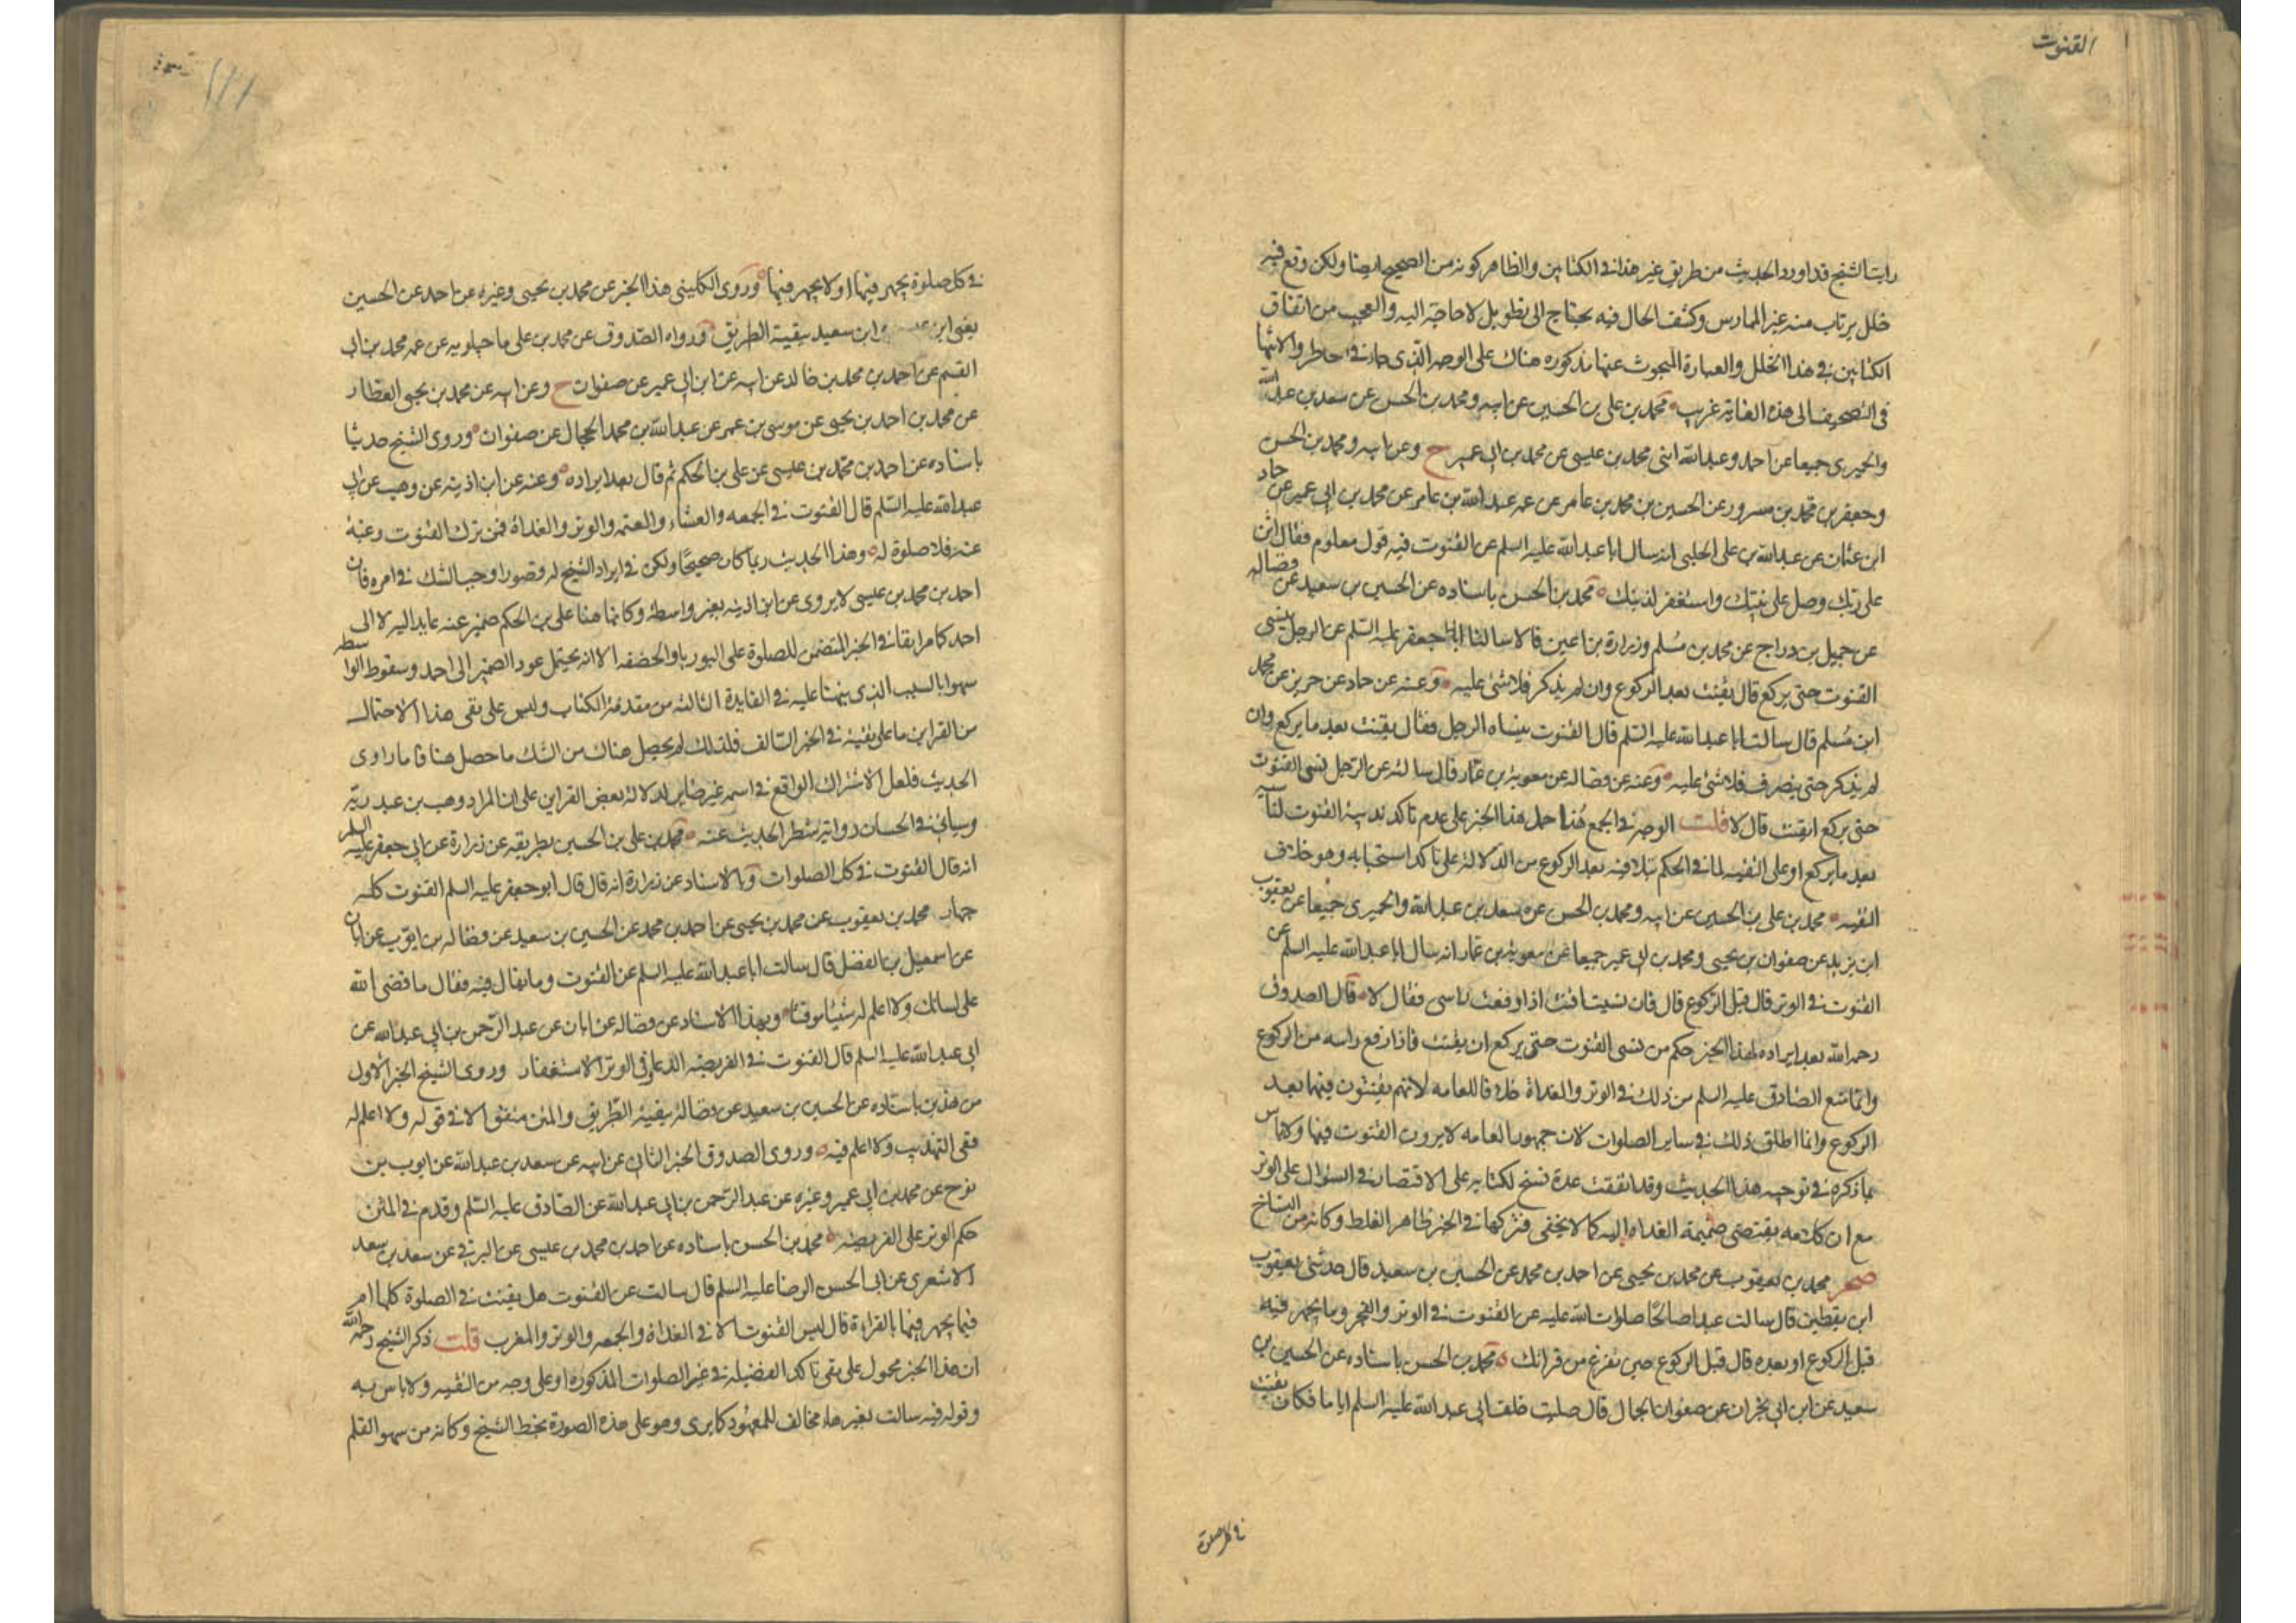 القنوت
رايت الشيخ قد اورد الحديث من طريق غير هذا في الكتابين والظاهر كونه من الصحيح ايضا ولكن وقع فيه
خلل يرتاب منه غير الممارس وكشف الحال فيه يحتاج الى تطويل لا حاجة اليه والعجب من اتفاق
الكتابين في هذا الخلل والعبارة المبحوث عنها مذكوره هناك على الوجه الذي حار في الخاطر والانتها
في التصحيف الى هذه الغاية غريب محمد بن علي بن الحسين عن ابيه ومحمد بن الحسن عن سعد بن عبد الله
والحميري جميعا عن احمد وعبد الله ابني محمد بن عيسى عن محمد بن ابي عمير ح وعن ابيه ومحمد بن الحسن
وجعفر بن محمد بن مسرور عن الحسين بن محمد بن عامر عن عمه عبد الله بن عامر عن محمد بن ابي عمير عن حماد
ابن عثمان عن عبد الله بن علي الحلبي انه سال ابا عبد الله عليه السلم عن القنوت فيه قول معلوم فقال اثن
على ربك وصل على نبيك واستغفر لذنبك محمد بن الحسن باسناده عن الحسين بن سعيد عن فضاله
عن جميل بن دراج عن محمد بن مسلم وزرارة بن اعين قالا سالنا ابا جعفر عليه السلم عن الرجل ينسى
القنوت حتى يركع قال يقنت بعد الركوع وان لم يذكر فلا شئ عليه وعنه عن حماد عن حريز عن محمد
ابن مسلم قال سالت ابا عبد الله عليه السلم قال القنوت ينساه الرجل فقال يقنت بعد ما يركع وان
لم يذكر حتى ينصرف فلا شئ عليه وعنه عن فضاله عن معوية بن عمار قال سالته عن الرجل نسي القنوت
حتى يركع ايقنت قال لا قلت الوجه في الجمع هنا حمل هذا الخبر على عدم تاكد ندبية القنوت لناسيه
بعد ما يركع او على التقيه لما في الحكم بتلافيه بعد الركوع من الدلالة على تاكد استحبابه وهو خلاف
التقيه محمد بن علي بن الحسين عن ابيه ومحمد بن الحسن عن سعد بن عبد الله والحميري جميعا عن يعقوب
ابن يزيد عن صفوان بن يحيى ومحمد بن ابي عمير جميعا عن معوية بن عمار انه سال ابا عبد الله عليه السلم عن
القنوت في الوتر قال قبل الركوع قال فان نسيت اقنت اذا رفعت راسي فقال لا قال الصدوق
رحمه الله بعد ايراده لهذا الخبر حكم من نسي القنوت حتى يركع ان يقنت فاذا رفع راسه من الركوع
وانما منع الصادق عليه السلم من ذلك في الوتر والغداة خلافا للعامه لانهم يقنتون فيهما بعد
الركوع وانما اطلق ذلك في ساير الصلوات لان جمهور العامه لا يرون القنوت فيها ولا باس
بما ذكره في توجيه هذا الحديث وقد اتفقت عدة نسخ لكتابه على الاقتصار في السؤال على الوتر
مع ان كلامه يقتضي ضميمة الغداه اليه كما لا يخفى فتركها في الخبر ظاهر الغلط وكانه من النساخ
صحر محمد بن يعقوب عن محمد بن يحيى عن احمد بن محمد عن الحسين بن سعيد قال حدثني يعقوب
ابن يقطين قال سالت عبدا صالحا صلوات الله عليه عن القنوت في الوتر والفجر وما يجهر فيه
قبل الركوع او بعده قال قبل الركوع حين تفرغ من قرائتك محمد بن الحسن باسناده عن الحسين بن
سعيد عن ابن ابي نجران عن صفوان الجمال قال صليت خلف ابي عبد الله عليه السلم اياما فكان يقنت
في كل صلوة
في كل صلوة يجهر فيها او لا يجهر فيها وروى الكليني هذا الخبر عن محمد بن يحيى وغيره عن احمد عن الحسين
يعني ابن سعيد ببقية الطريق ورواه الصدوق عن محمد بن علي ماجيلويه عن عمه محمد بن ابي
القسم عن احمد بن محمد بن خالد عن ابيه عن ابن ابي عمير عن صفوان ح وعن ابيه عن محمد بن يحيى العطار
عن محمد بن احمد بن يحيى عن موسى بن عمر عن عبد الله بن محمد الحجال عن صفوان وروى الشيخ حديثا
باسناده عن احمد بن محمد بن عيسى عن علي بن الحكم ثم قال بعد ايراده وعنه عن ابن اذينه عن وهب عن ابي
عبد الله عليه السلم قال القنوت في الجمعه والعشاء والعتمه والوتر والغداة فمن ترك القنوت رغبة
عنه فلا صلوة له وهذا الحديث ربما كان صحيحا ولكن في ايراد الشيخ له قصورا وجب الشك في امره فان
احمد بن محمد بن عيسى لا يروي عن ابن اذينه بغير واسطة وكانما هنا علي بن الحكم ضمير عنه عايد اليه لا الى
احمد كما مر ايقاف في الخبر المتضمن للصلوة على البوريا والخصفه الا انه يحتمل عود الضمير الى احمد وسقوط الواسطه
سهوا بالسبب الذي نبهنا عليه في الفايدة الثالثه من مقدمة الكتاب وليس على نفي هذا الاحتمال
من القراين ما على نفيه في الخبر السالف فلذلك لم يحصل هناك من الشك ما حصل هنا فاما راوي
الحديث فلعل الاشتراك الواقع في اسمه غير ضاير لدلالة بعض القراين على ان المراد وهب بن عبد ربه
وسياتي في الحسان روايته شطر الحديث عنه محمد بن علي بن الحسين بطريقه عن زرارة عن ابي جعفر عليه السلم
انه قال القنوت في كل الصلوات وبالاسناد عن زرارة انه قال قال ابو جعفر عليه السلم القنوت كله
جهار محمد بن يعقوب عن محمد بن يحيى عن احمد بن محمد عن الحسين بن سعيد عن فضاله بن ايوب عن ابان
عن اسمعيل بن الفضل قال سالت ابا عبد الله عليه السلم عن القنوت وما يقال فيه فقال ما قضى الله
على لسانك ولا اعلم له شيئا موقتا وبهذا الاسناد عن فضاله عن ابان عن عبد الرحمن بن ابي عبد الله عن
ابي عبد الله عليه السلم قال القنوت في الفريضه الدعا وفي الوتر الاستغفار وروى الشيخ الخبر الاول
من هذين باسناده عن الحسين بن سعيد عن فضالة ببقية الطريق والمتن متفق الا في قوله ولا اعلم له
ففي التهذيب ولا اعلم فيه وروى الصدوق الخبر الثاني عن ابيه عن سعد بن عبد الله عن ايوب بن
نوح عن محمد بن ابي عمير وغيره عن عبد الرحمن بن ابي عبد الله عن الصادق عليه السلم وقدم في المتن
حكم الوتر على الفريضه محمد بن الحسن باسناده عن احمد بن محمد بن عيسى عن البرقي عن سعد بن سعد
الاشعري عن ابي الحسن الرضا عليه السلم قال سالت عن القنوت هل يقنت في الصلوة كلها ام
فيما يجهر فيها بالقراءة قال ليس القنوت الا في الغداة والجمعه والوتر والمغرب قلت ذكر الشيخ رحمه الله
ان هذا الخبر محمول على نفي تاكد الفضيله في غير الصلوات المذكوره او على وجه من التقيه ولا باس به
وقوله فيه سالت بغير هاء مخالف للمعهود كما يرى وهو على هذه الصورة بخط الشيخ وكانه من سهو القلم